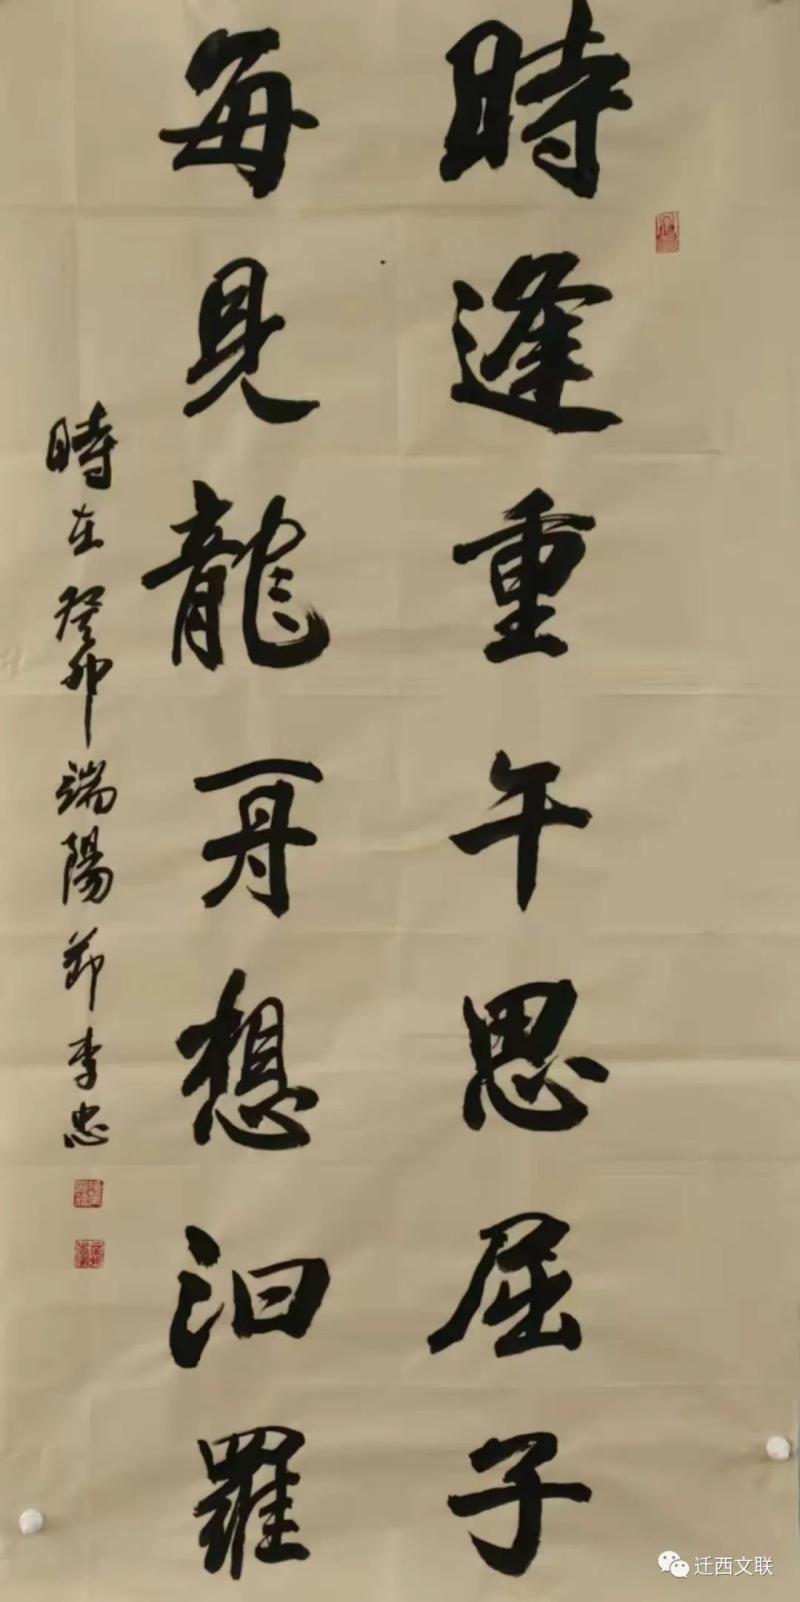 時逢重午思屈子
每見龍舟想汨羅
時在癸卯端陽節李忠
迁西文联